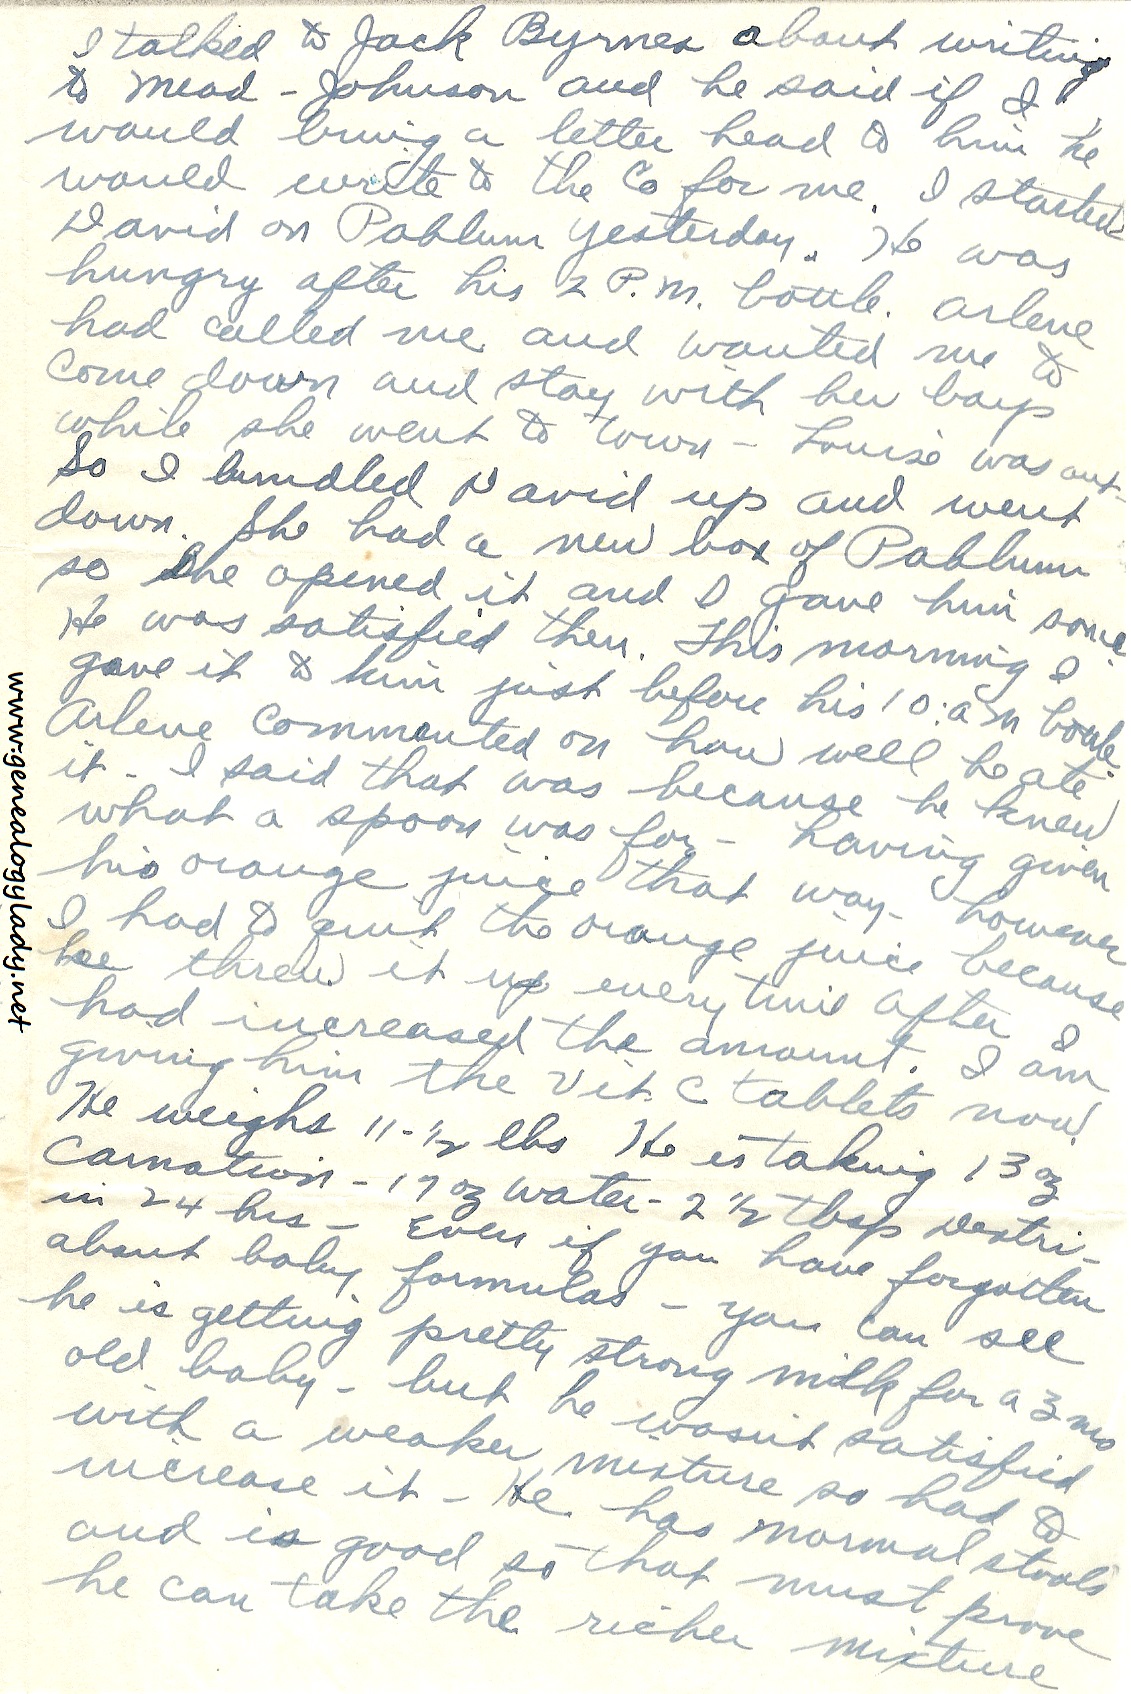 I talked to Jack Byrnes about writing
to Mead-Johnson and he said if I
would bring a letter head to him he
would write to the Co for me. I started
David on Pablum yesterday. He was
hungry after his 2 P.M. bottle. Arlene
had called me and wanted me to
come down and stay with her boys
while she went to town - Louise was out-
So I bundled David up and went
down. She had a new box of Pablum
so she opened it and I gave him some.
He was satisfied then. This morning I
gave it to him just before his 10:am bottle.
Arlene commented on how well he ate
it - I said that was because he knew
what a spoon was for - having given
his orange juice that way - however
I had to quit the orange juice because
he threw it up everytime after I
had increased the amount. I am
giving him the Vit. C tablets now.
He weighs 11-1/2 lbs He is taking 13 oz
Carnation - 17 oz water - 2 1/2 tbsp Dextri-
in 24 hrs - Even if you have forgotten
about baby formulas - you can see
he is getting pretty strong milk for a 3 mo
old baby - but he wasn't satisfied
with a weaker mixture so had to
increase it - He has normal stools
and is good so that must prove
he can take the richer mixture
www.genealogylady.net